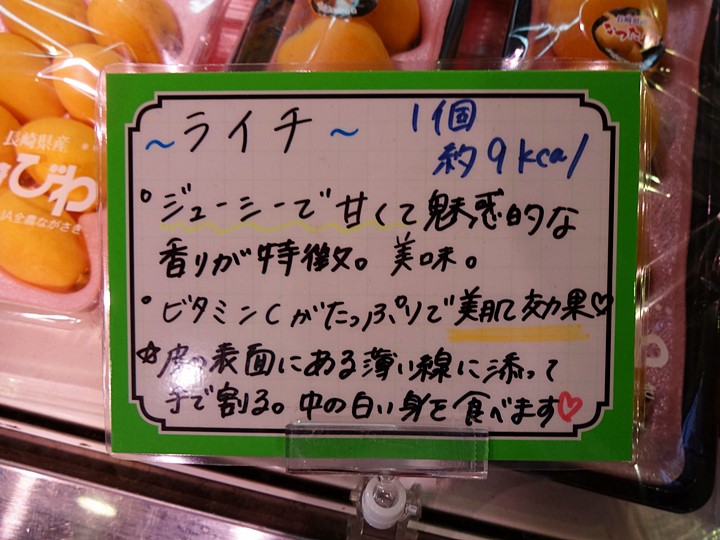 ～ライチ～
1個
約9kcal
°ジューシーで甘くて魅惑的な
香りが特徴。美味。
°ビタミンCがたっぷりで美肌効果♡
☆皮の表面にある薄い線に添って
手で割る。中の白い身を食べます♡
長崎県産
びわ
JA全農ながさき
長崎県産